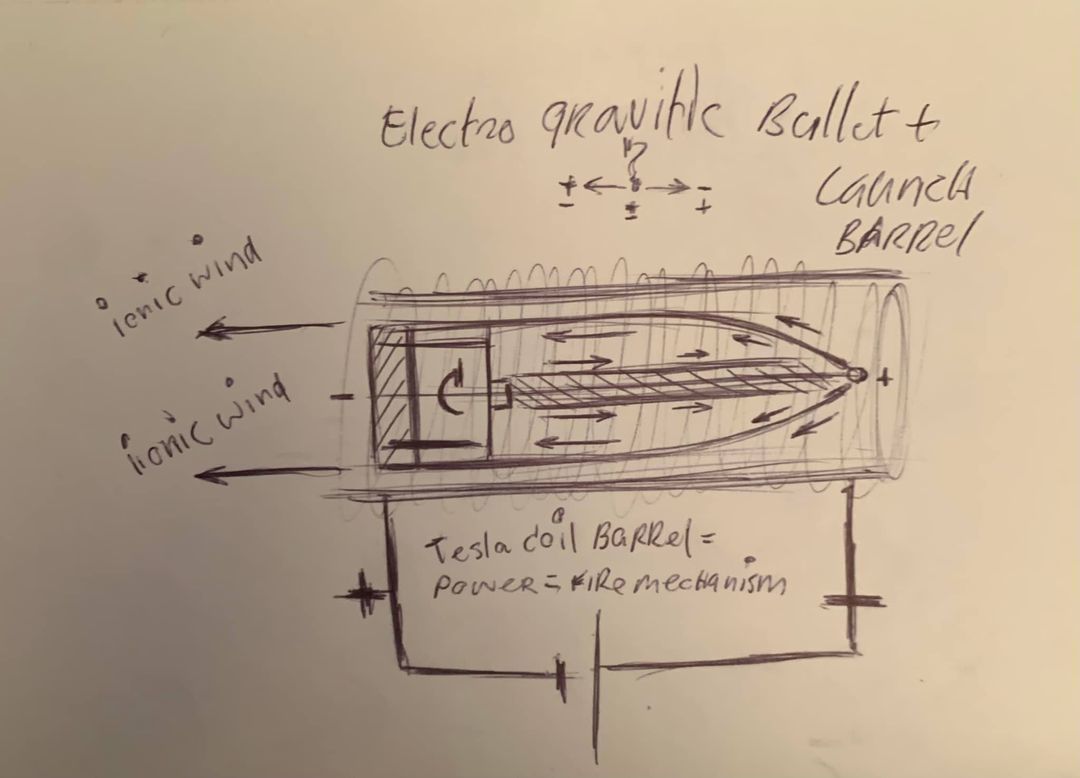 Electro gravitic Bullet +
Launch
BARRel
"?
+ ← → -
- ± +
ionic wind
ionic wind
-
+
Tesla coil BARRel =
Power = FIRe mechanism